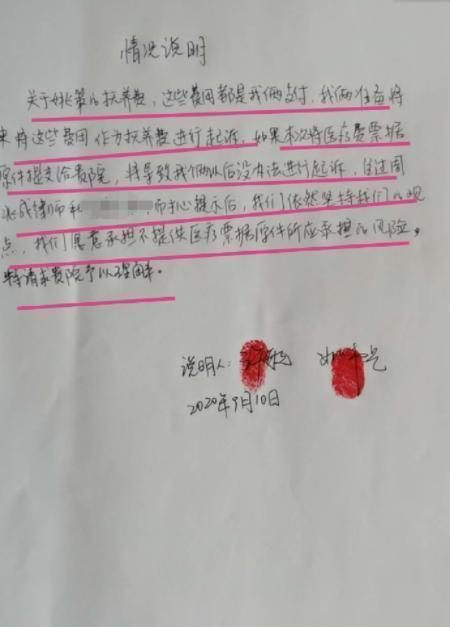 情况说明
关于姚策的抚养费，这些费用都是我俩支付，我俩准备将
来将这些费用作为抚养费进行起诉，如果本次将医疗费票据
原件提交给贵院，将导致我俩以后没办法进行起诉，在周
兆成律师和 耐心提示后，我们依然坚持我们的观
点，我们愿意承担不提供医疗票据原件所应承担的风险。
特请求贵院予以理解。
说明人：
2020年9月10日